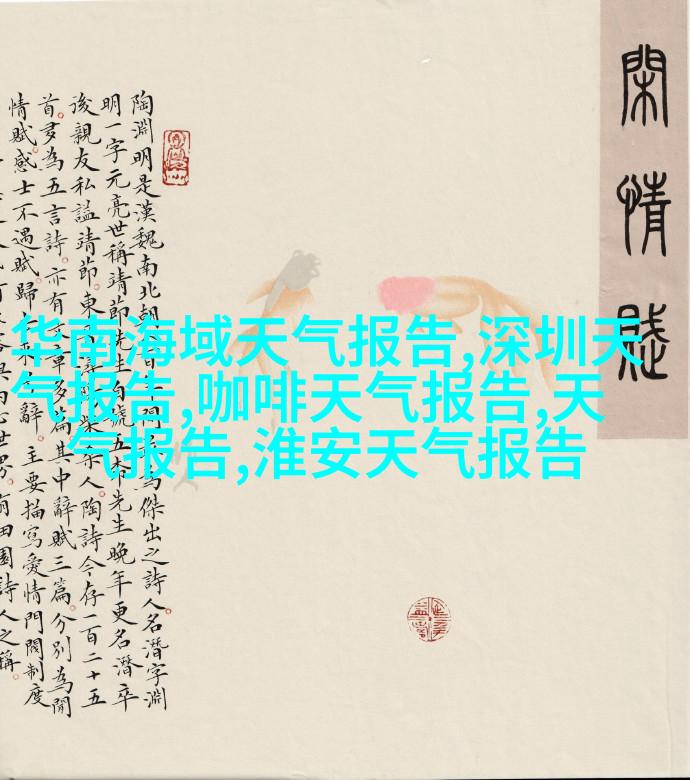 閑情賦
陶淵明是漢魏南北朝傑出之詩人名潛字淵
明一字元亮世稱靖節先生自號五柳先生晚年更名潛卒
後親友私謚靖節東柴桑人陶詩今存一百二十五
首多為五言詩亦有文章多篇其中辭賦三篇分別為閒
情賦感士不遇賦歸去來辭主要描寫愛情門閥制度
田園詩人之稱
华南海域天气报告,深圳天
气报告,咖啡天气报告,天
气报告,淮安天气报告